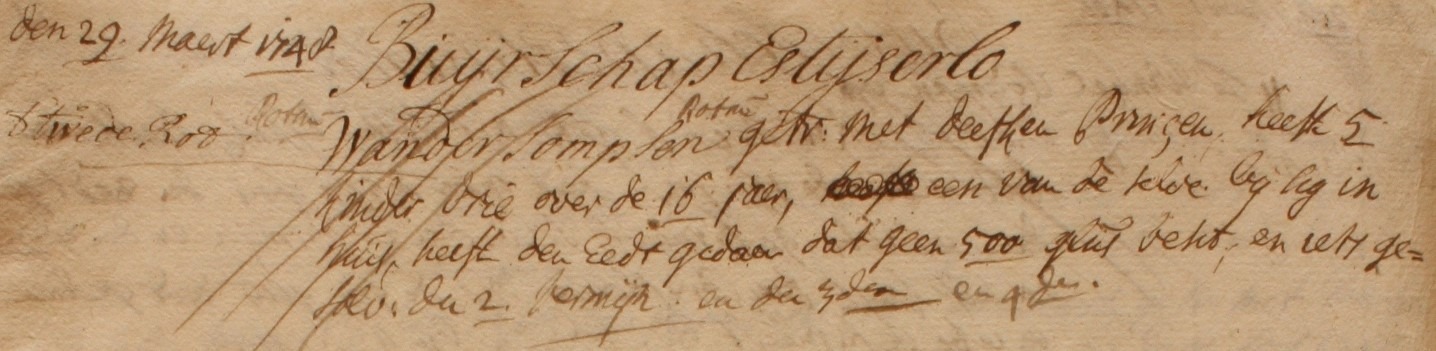 den 29. Maert 1748
Buijrschap Estijserlo
t twede Rot Rotmr
Wander sompsen Rotmr getr: met deesken Prinçen, heeft 5
kinder drie over de 16 jaer, een van de selve by sig in
huis, heeft den Eedt gedaen dat geen 500 guls besit, en iets ge=
den 2. termijn en den 3den en 4den.